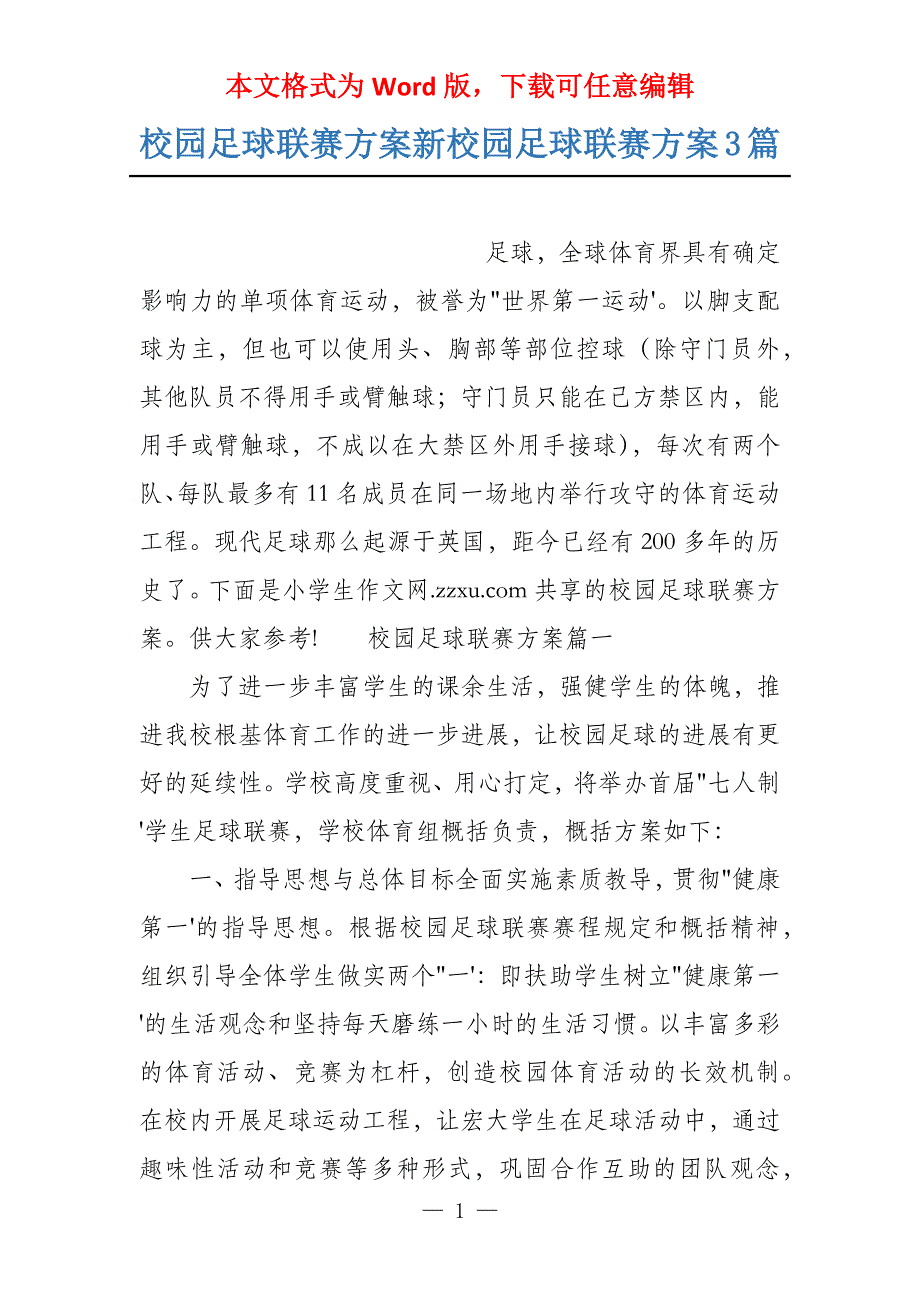 本文格式为 Word 版，下载可任意编辑
校园足球联赛方案新校园足球联赛方案 3 篇
足球，全球体育界具有确定
影响力的单项体育运动，被誉为"世界第一运动'。以脚支配
球为主，但也可以使用头、胸部等部位控球（除守门员外，
其他队员不得用手或臂触球；守门员只能在己方禁区内，能
用手或臂触球，不成以在大禁区外用手接球），每次有两个
队、每队最多有 11 名成员在同一场地内举行攻守的体育运动
工程。现代足球那么起源于英国，距今已经有 200 多年的历
史了。下面是小学生作文网.zzxu.com 共享的校园足球联赛方
案。供大家参考!　　校园足球联赛方案篇一
为了进一步丰富学生的课余生活，强健学生的体魄，推
进我校根基体育工作的进一步进展，让校园足球的进展有更
好的延续性。学校高度重视、用心打定，将举办首届"七人制
'学生足球联赛，学校体育组概括负责，概括方案如下：
一、指导思想与总体目标全面实施素质教导，贯彻"健康
第一'的指导思想。根据校园足球联赛赛程规定和概括精神，
组织引导全体学生做实两个"一'：即扶助学生树立"健康第一
'的生活观念和坚持每天磨练一小时的生活习惯。以丰富多彩
的体育活动、竞赛为杠杆，创造校园体育活动的长效机制。
在校内开展足球运动工程，让宏大学生在足球活动中，通过
趣味性活动和竞赛等多种形式，巩固合作互助的团队观念，
— 1 —